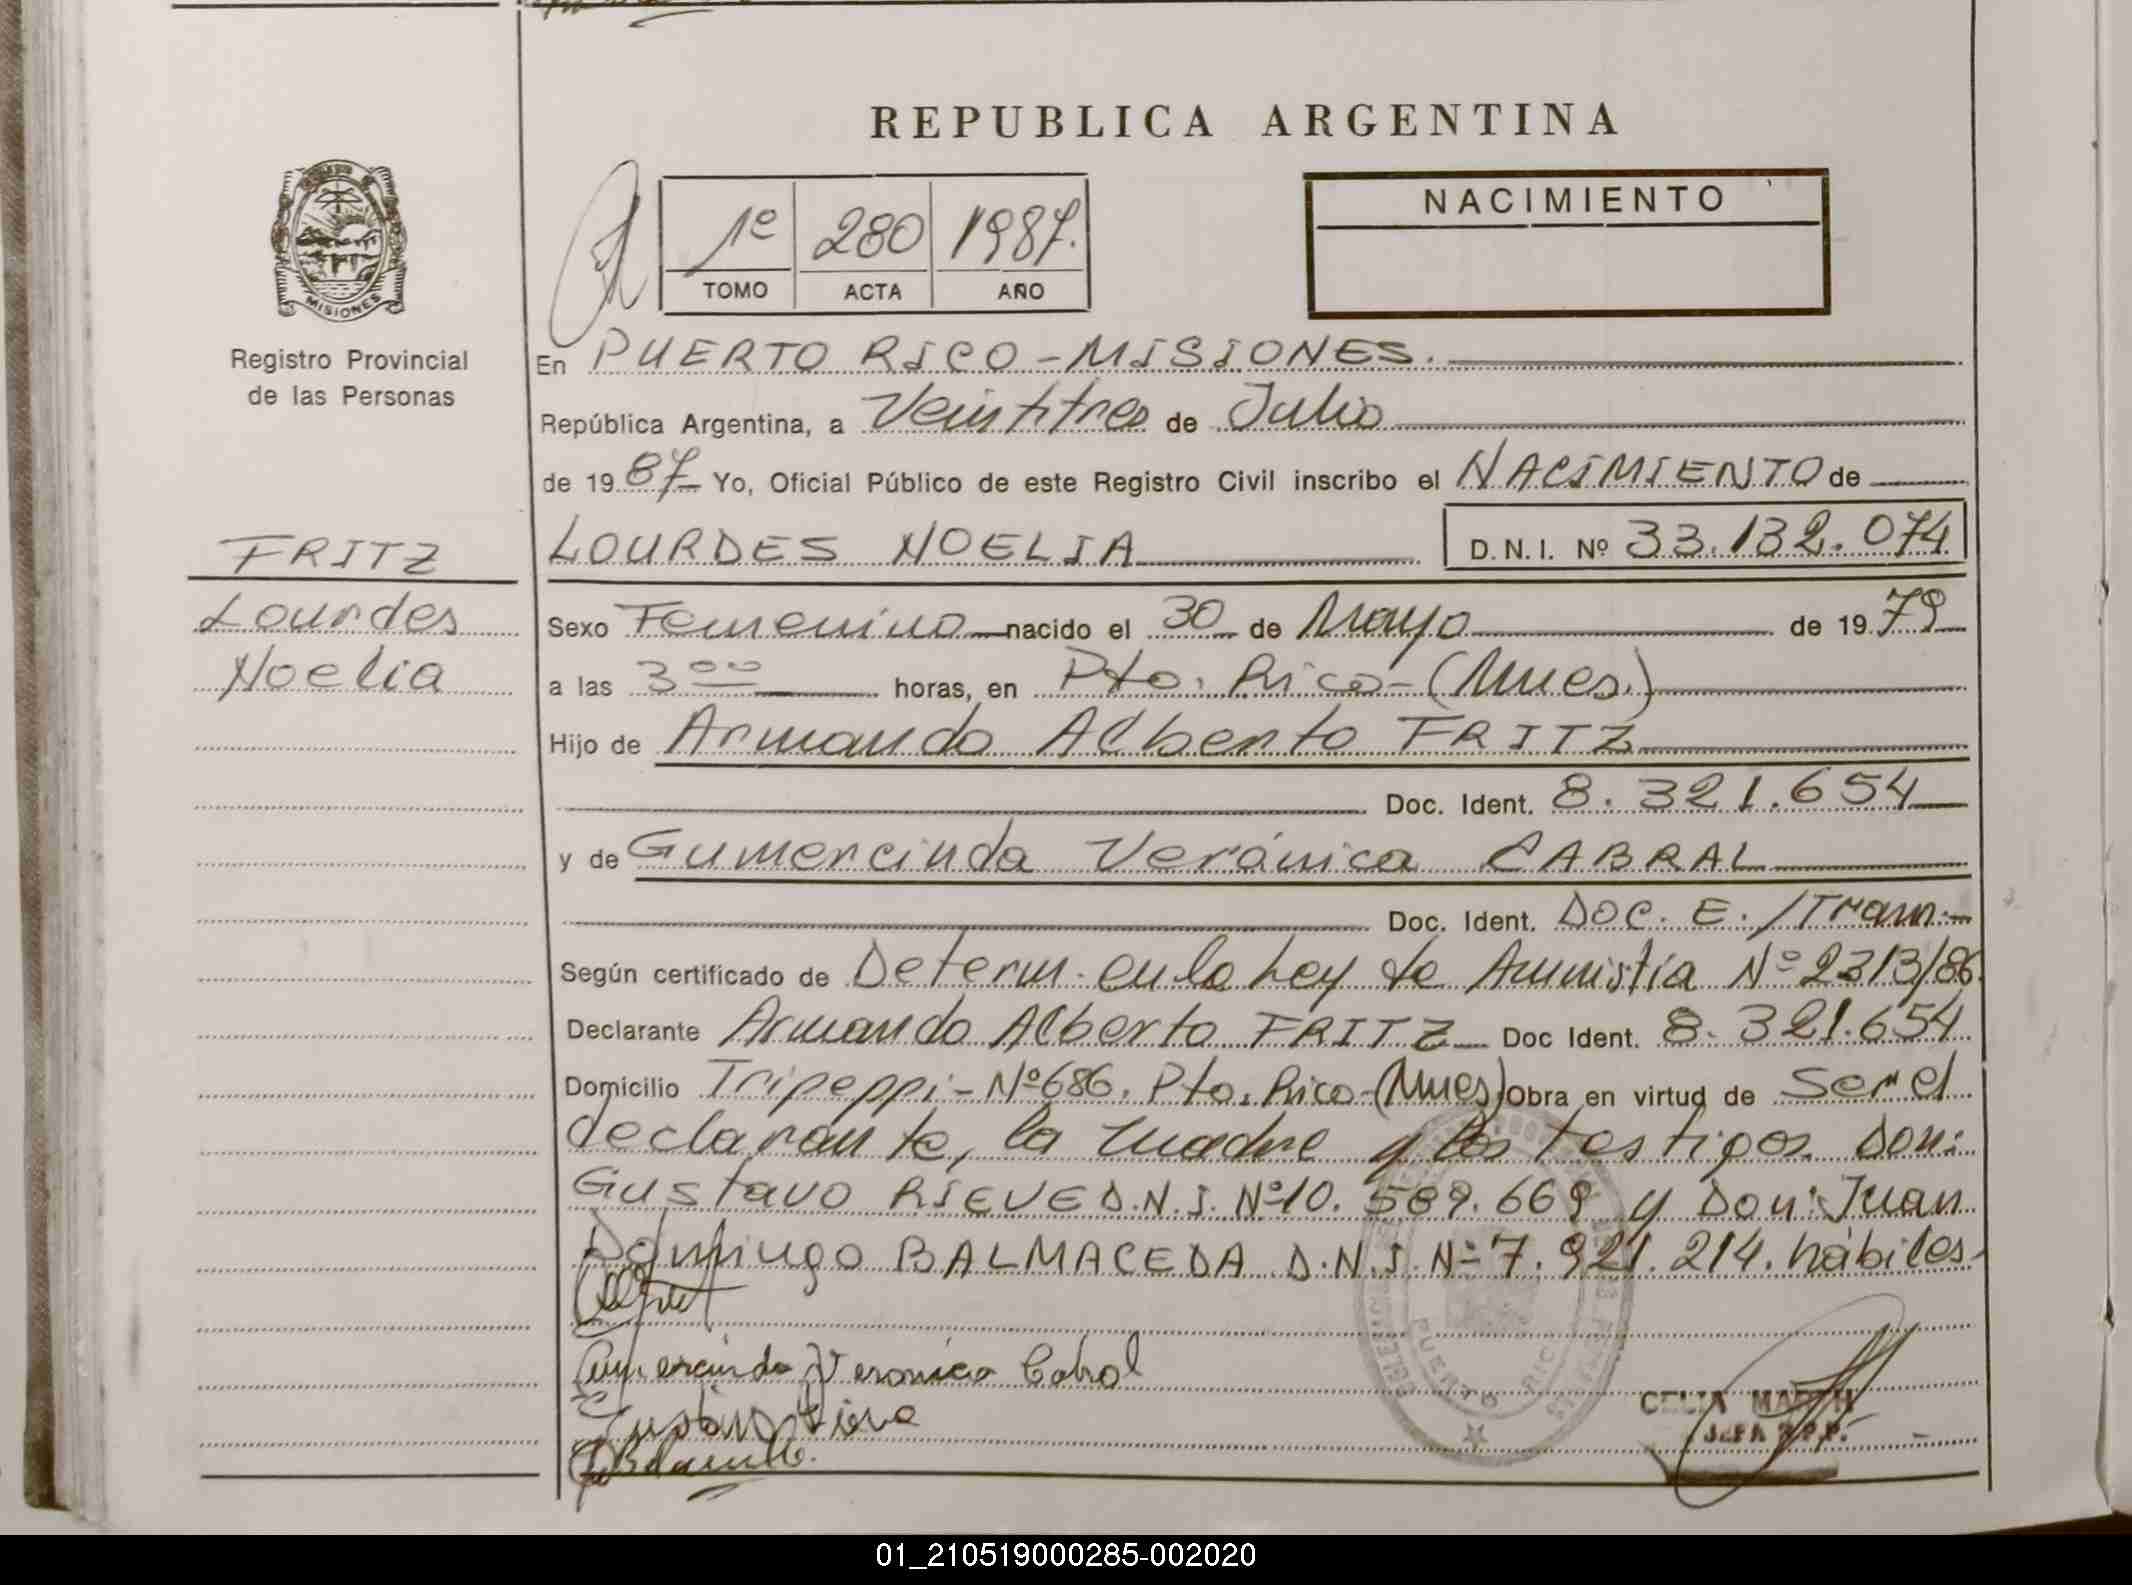 REPUBLICA ARGENTINA
1º 280 1987.
TOMO ACTA AÑO
NACIMIENTO
MISIONES
Registro Provincial
de las Personas
En PUERTO RICO - MISIONES.
República Argentina, a Veintitres de Julio
de 1987 Yo, Oficial Público de este Registro Civil inscribo el NACIMIENTO de
FRITZ
LOURDES NOELIA D.N.I. Nº 33.132.074
Lourdes
Sexo Femenino nacido el 30 de Mayo de 1979
Noelia
a las 3 00 horas, en Pto. Rico - (Mnes.)
Hijo de Armando Alberto FRITZ
Doc. Ident. 8.321.654
y de Gumercinda Verónica CABRAL
Doc. Ident. DOC. E./Tram.
Según certificado de Determ. en la Ley de Amnistía Nº 2313/86.
Declarante Armando Alberto FRITZ Doc Ident. 8.321.654
Domicilio Tripeppi - Nº 686. Pto. Rico - (Mnes) Obra en virtud de Ser el
declarante, la madre y los testigos Don:
Gustavo RIEVE D.N.I. Nº 10.589.669 y Don: Juan
Domingo BALMACEDA D.N.I. Nº 7.921.214. hábiles.
Gumercinda Veronica Cabral
PUERTO RICO
CELIA
JEFA R.P.P.
01_210519000285-002020